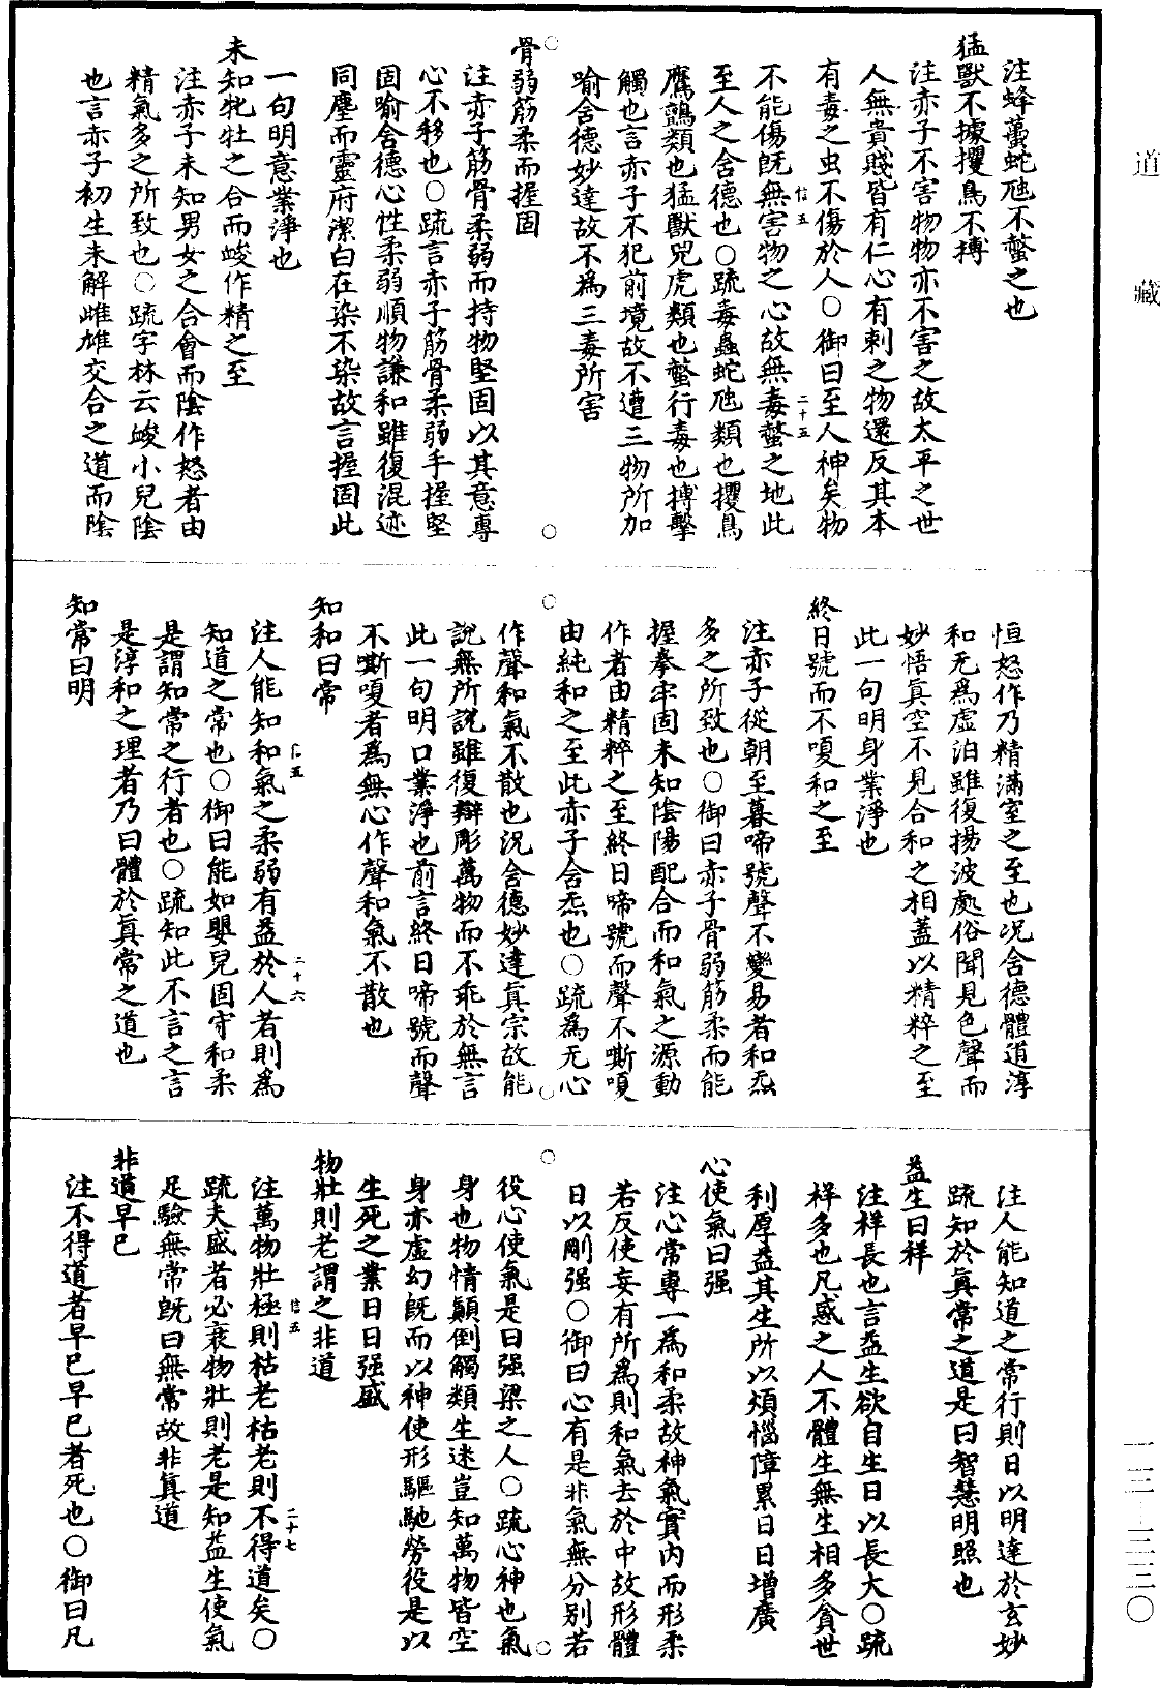 道藏
一三—三三〇
注蜂蠆蛇虺不螫之也
猛獸不據攫鳥不搏
注赤子不害物物亦不害之故太平之世
人無貴賤皆有仁心有刺之物還反其本
有毒之虫不傷於人〇御曰至人神矣物
不能傷旣無害物之心故無毒螫之地此
信五
二十五
至人之含德也〇疏毒蟲蛇虺類也攫鳥
鷹鸇類也猛獸兕虎類也螫行毒也搏擊
觸也言赤子不犯前境故不遭三物所加
喻含德妙達故不為三毒所害
骨弱筋柔而握固
注赤子筋骨柔弱而持物堅固以其意專
心不移也〇疏言赤子筋骨柔弱手握堅
固喻含德心性柔弱順物謙和雖復混迹
同塵而靈府潔白在染不染故言握固此
一句明意業淨也
未知牝牡之合而峻作精之至
注赤子未知男女之合會而陰作怒者由
精氣多之所致也〇疏字林云峻小兒陰
也言赤子初生未解雌雄交合之道而陰
恒怒作乃精滿室之至也況含德體道淳
和无為虛泊雖復揚波處俗聞見色聲而
妙悟真空不見合和之相蓋以精粹之至
此一句明身業淨也
終日號而不嗄和之至
注赤子從朝至暮啼號聲不變易者和炁
多之所致也〇御曰赤子骨弱筋柔而能
握拳牢固未知陰陽配合而和氣之源動
作者由精粹之至終日啼號而聲不嘶嗄
由純和之至此赤子含炁也〇疏為无心
作聲和氣不散也況含德妙達真宗故能
說無所說雖復辯彫萬物而不乖於無言
此一句明口業淨也前言終日啼號而聲
不嘶嗄者為無心作聲和氣不散也
知和曰常
注人能知和氣之柔弱有益於人者則為
信五
二十六
知道之常也〇御曰能如嬰兒固守和柔
是謂知常之行者也〇疏知此不言之言
是淳和之理者乃曰體於真常之道也
知常曰明
注人能知道之常行則日以明達於玄妙
疏知於真常之道是曰智慧明照也
益生曰祥
注祥長也言益生欲自生日以長大〇疏
祥多也凡惑之人不體生無生相多貪世
利厚益其生所以煩惱障累日日增廣
心使氣曰强
注心常專一為和柔故神氣實內而形柔
若反使妄有所為則和氣去於中故形體
日以剛强〇御曰心有是非氣無分別若
役心使氣是曰强梁之人〇疏心神也氣
身也物情顛倒觸類生迷豈知萬物皆空
身亦虛幻旣而以神使形驅馳勞役是以
生死之業日日强盛
物壯則老謂之非道
注萬物壯極則枯老枯老則不得道矣〇
信五
二十七
疏夫盛者必衰物壯則老是知益生使氣
足驗無常旣曰無常故非真道
非道早已
注不得道者早已早已者死也〇御曰凡